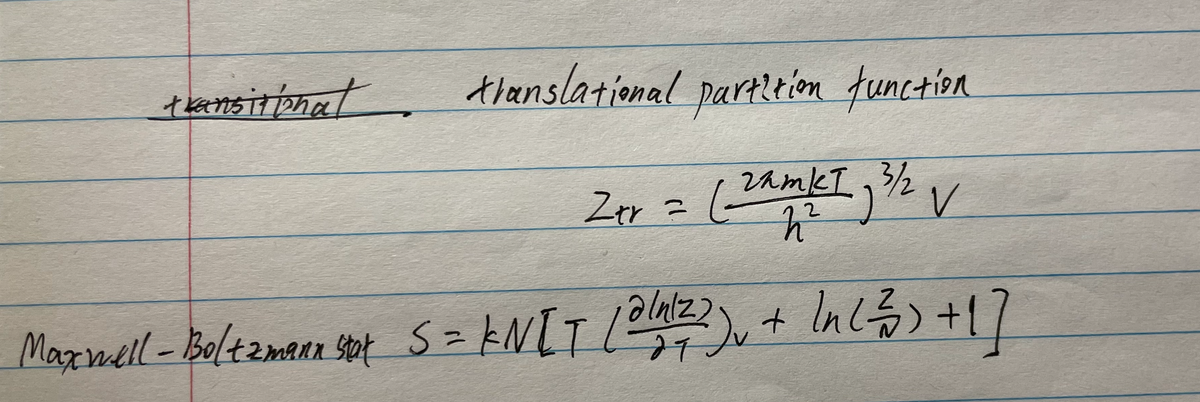 transitional. translational partition function
Ztr = (2πmkT / h²)^3/2 V
Maxwell-Boltzmann stat S = kN[T (∂ln(Z) / ∂T)v + ln(Z/N) + 1]